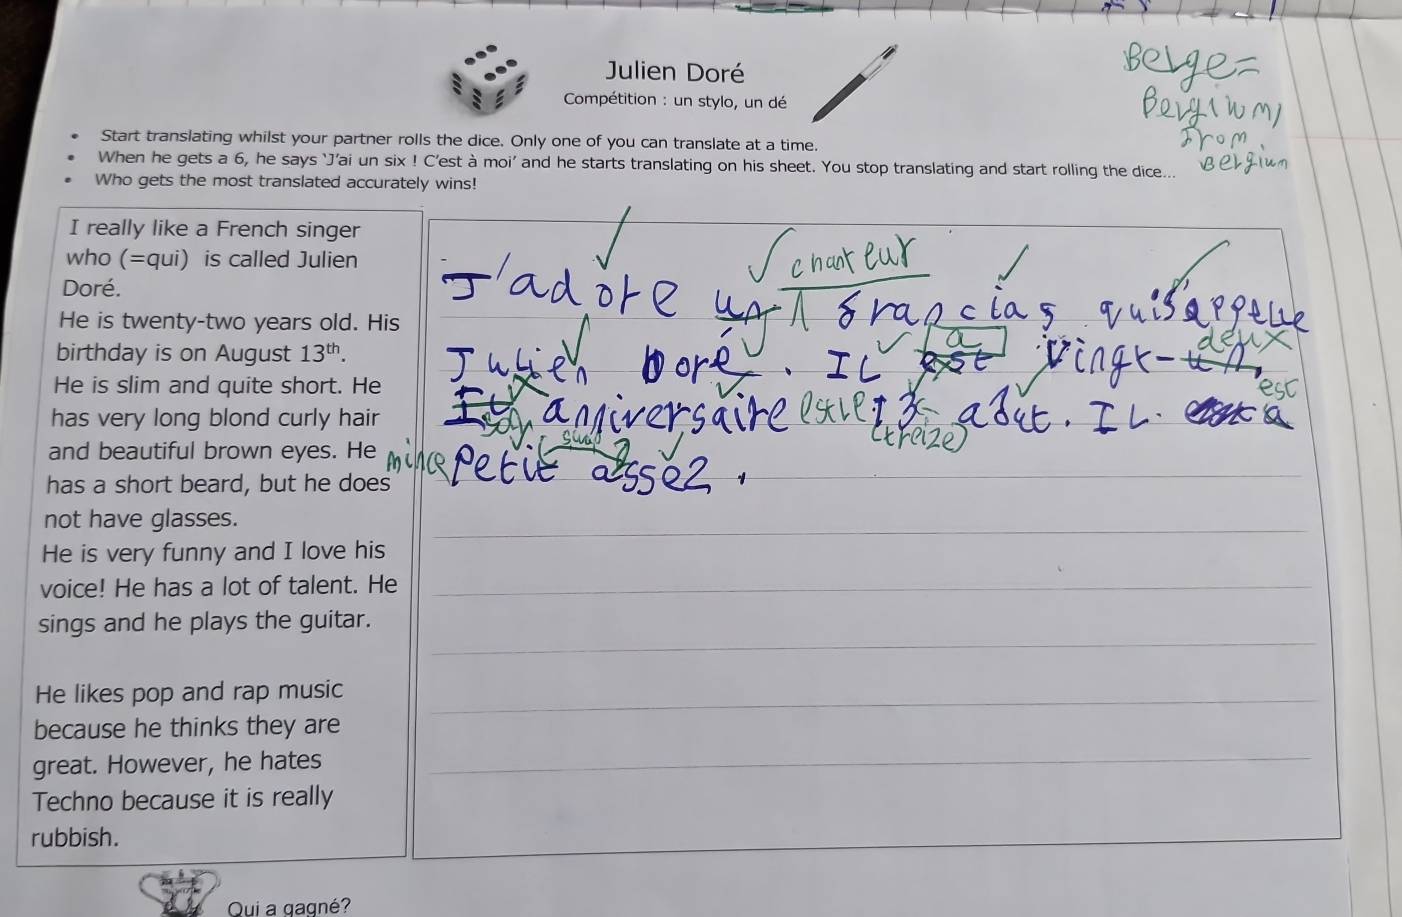 Julien Doré
Compétition : un stylo, un dé
Belge =
Bergium/
From
Bergium
• Start translating whilst your partner rolls the dice. Only one of you can translate at a time.
• When he gets a 6, he says 'J'ai un six ! C'est à moi' and he starts translating on his sheet. You stop translating and start rolling the dice...
• Who gets the most translated accurately wins!
I really like a French singer
who (=qui) is called Julien
Doré.
He is twenty-two years old. His
birthday is on August 13th.
He is slim and quite short. He
has very long blond curly hair
and beautiful brown eyes. He
has a short beard, but he does
not have glasses.
He is very funny and I love his
voice! He has a lot of talent. He
sings and he plays the guitar.
He likes pop and rap music
because he thinks they are
great. However, he hates
Techno because it is really
rubbish.
chanteur
J'adore un francias qui s'appelle
a deux
Julien Doré. IL est vingt-un,
est
son anniversaire est le 13 aout. IL a
(treize)
swap
mince petit assez.
Qui a gagné?